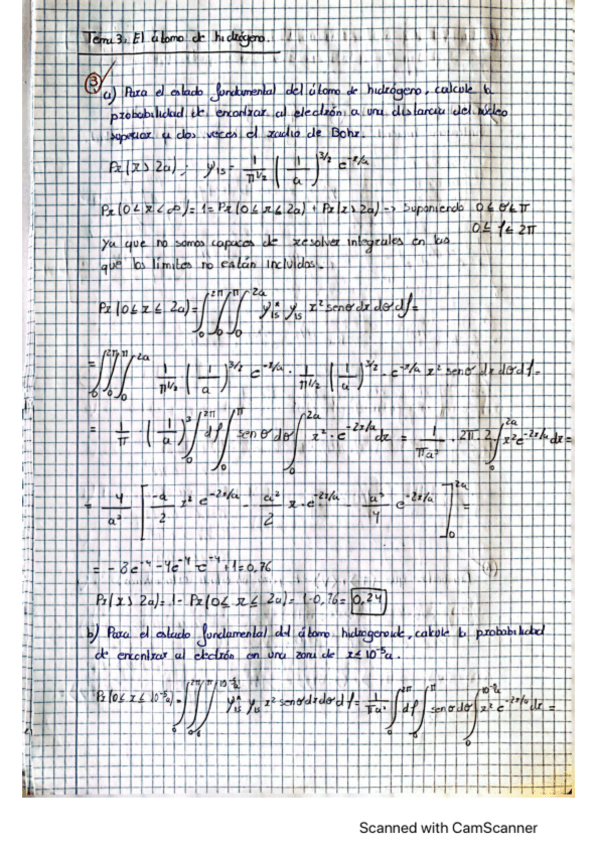 Tema 3. El átomo de hidrógeno.
③ a) Para el estado fundamental del átomo de hidrógeno, calcule la
probabilidad de encontrar al electrón a una distancia del núcleo
superior a dos veces el radio de Bohr.
Pr(r>2a); ψ1s = 1/π^1/2 (1/a)^3/2 e^-r/a
Pr(0≤r<∞)=1=Pr(0≤r≤2a)+Pr(r>2a) -> Suponiendo 0≤θ≤π
0≤φ≤2π
ya que no somos capaces de resolver integrales en las
que los límites no están incluidos.
Pr(0≤r≤2a)=∫₀^2π∫₀^π∫₀^2a ψ1s* ψ1s r² senθ dr dθ dφ =
= ∫₀^2π∫₀^π∫₀^2a 1/π^1/2 (1/a)^3/2 e^-r/a · 1/π^1/2 (1/a)^3/2 · e^-r/a r² senθ dr dθ dφ =
= 1/π (1/a)³ ∫₀^2π dφ ∫₀^π senθ dθ ∫₀^2a r² · e^-2r/a dr = 1/πa³ · 2π · 2 · ∫₀^2a r² e^-2r/a dr =
= 4/a³ [ -a/2 r² e^-2r/a - a²/2 r · e^-2r/a - a³/4 e^-2r/a ]₀^2a =
= -8e^-4 - 4e^-4 - e^-4 + 1 = 0,76
Pr(r>2a) = 1 - Pr(0≤r≤2a) = 1 - 0,76 = 0,24
b) Para el estado fundamental del átomo hidrogenoide, calcule la probabilidad
de encontrar al electrón en una zona de r≤10^-5 a.
Pr(0≤r≤10^-5 a) = ∫₀^2π∫₀^π∫₀^10^-5a ψ1s* ψ1s r² senθ dr dθ dφ = 1/πa³ ∫₀^2π dφ ∫₀^π senθ dθ ∫₀^10^-5a r² e^-2r/a dr =
Scanned with CamScanner